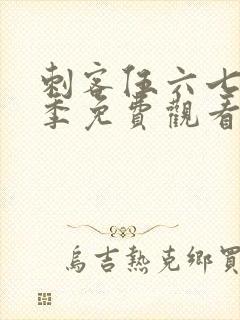 刺客伍六七
季免費觀看
烏吉熱克鄉買